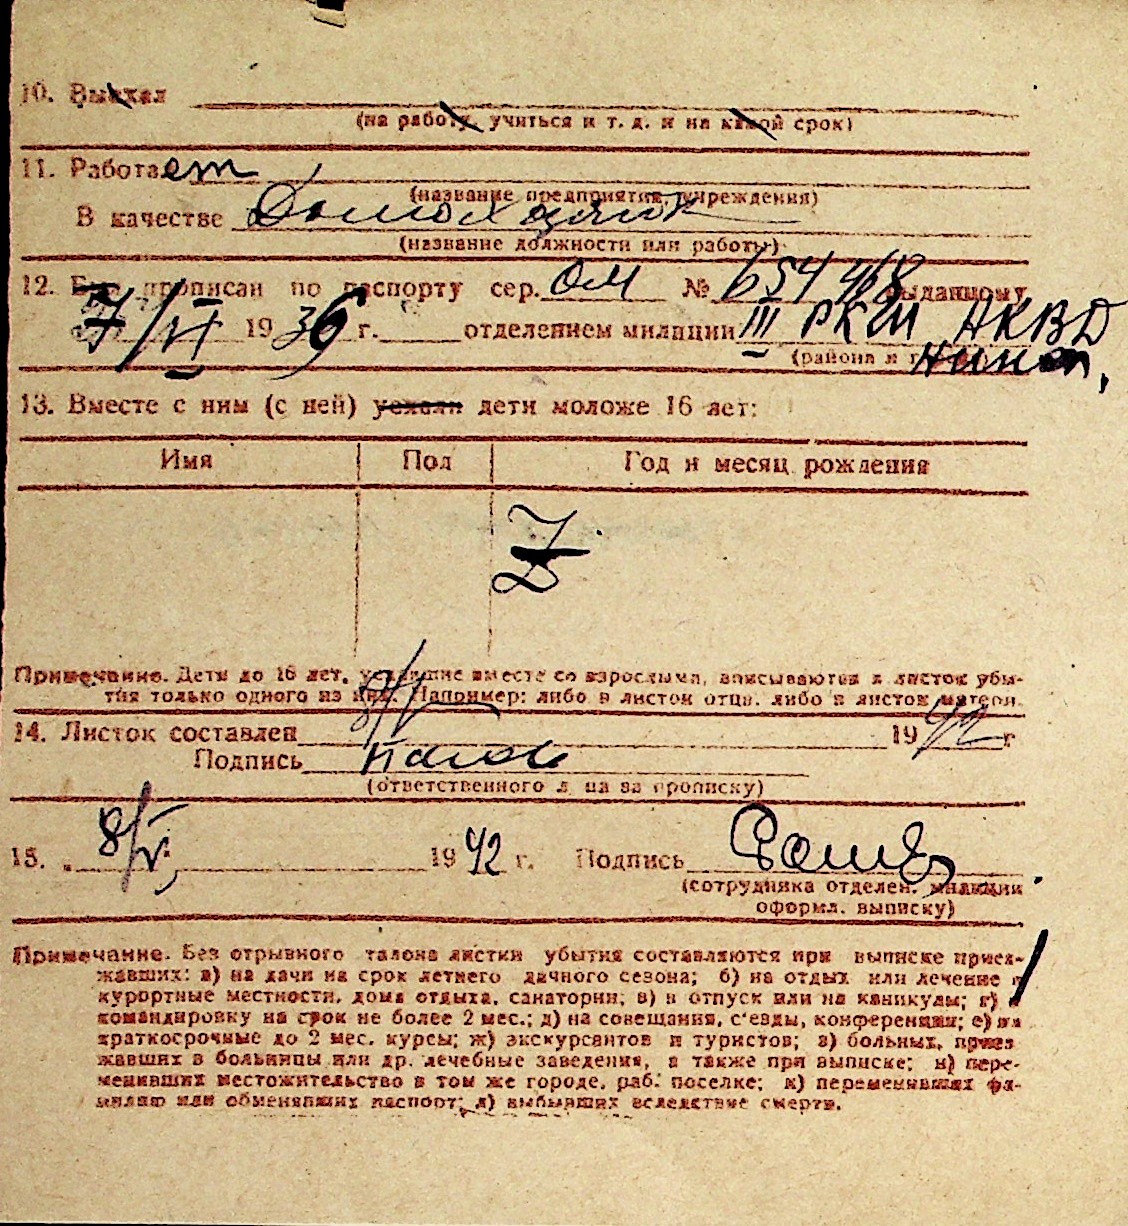 10. Выехал
(на работу, учиться и т. д. и на какой срок)
11. Работает
(название предприятия, учреждения)
В качестве Домохозяйка
(название должности или работы)
12. Был прописан по паспорту сер. ОМ № 654468 выданному
7/VI 1936 г. отделением милиции III РКМ НКВД
(района и г
13. Вместе с ним (с ней) уехали дети моложе 16 лет:
Имя Пол Год и месяц рождения
Z
Примечание. Дети до 16 лет, уехавшие вместе со взрослыми, вписываются в листок убы-
тия только одного из них. Например: либо в листок отца, либо в листок матери.
14. Листок составлен 1942 г
Подпись
(ответственного лица за прописку)
15. 8/V 1942 г. Подпись
(сотрудника отделен. милиции
оформл. выписку)
Примечание. Без отрывного талона листки убытия составляются при выписке приез-
жавших: а) на дачи на срок летнего дачного сезона; б) на отдых или лечение в
курортные местности, дома отдыха, санатории; в) в отпуск или на каникулы; г) в
командировку на срок не более 2 мес.; д) на совещания, с'езды, конференции; е) на
краткосрочные до 2 мес. курсы; ж) экскурсантов и туристов; з) больных, приез
жавших в больницы или др. лечебные заведения, а также при выписке; и) пере-
менивших местожительство в том же городе, раб. поселке; к) переменивших фа-
милию или обменявших паспорт; л) выбывших вследствие смерти.